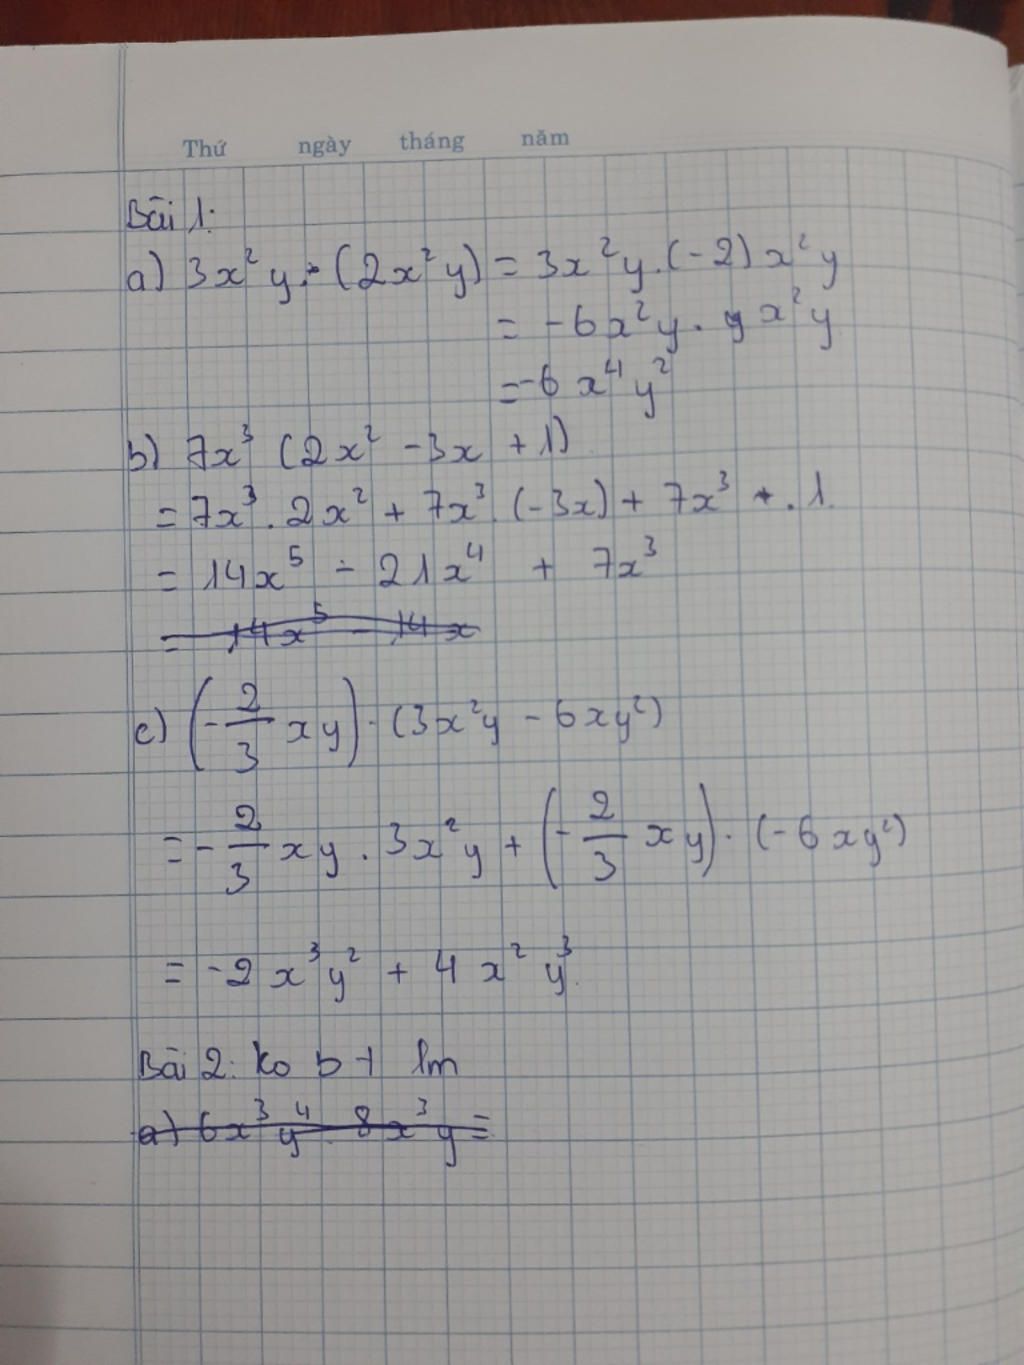 Thứ ngày tháng năm
Bài 1:
a) 3x²y.-(2x²y) = 3x²y.(-2)x²y
= -6x²y. y x²y
= -6 x⁴y²
b) 7x³ (2x² -3x +1)
= 7x³. 2x² + 7x³.(-3x) + 7x³ . 1
= 14x⁵ - 21x⁴ + 7x³
= 14x⁵ - 14x
c) (-2/3 xy).(3x²y - 6xy²)
= -2/3 xy . 3x²y + (-2/3 xy).(-6xy²)
= -2x³y² + 4x²y³
Bài 2: ko bt lm
a) 6x³y⁴ . 8x³y =